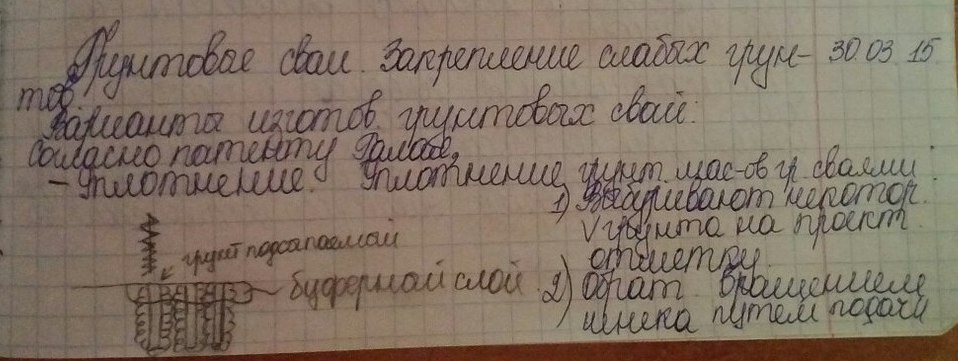 Грунтовые сваи. Закрепление слабых грун- 30.03.15
тов.
Варианты изготов. грунтовых свай:
Согласно патенту
- Уплотнение. Уплотнение грунт. мас-ов гр. сваями:
1) Выбуривают некотор.
V грунта на проект.
отметку.
грунт подсыпаемый
буферный слой
2) Обрат. вращением
шнека путем подачи